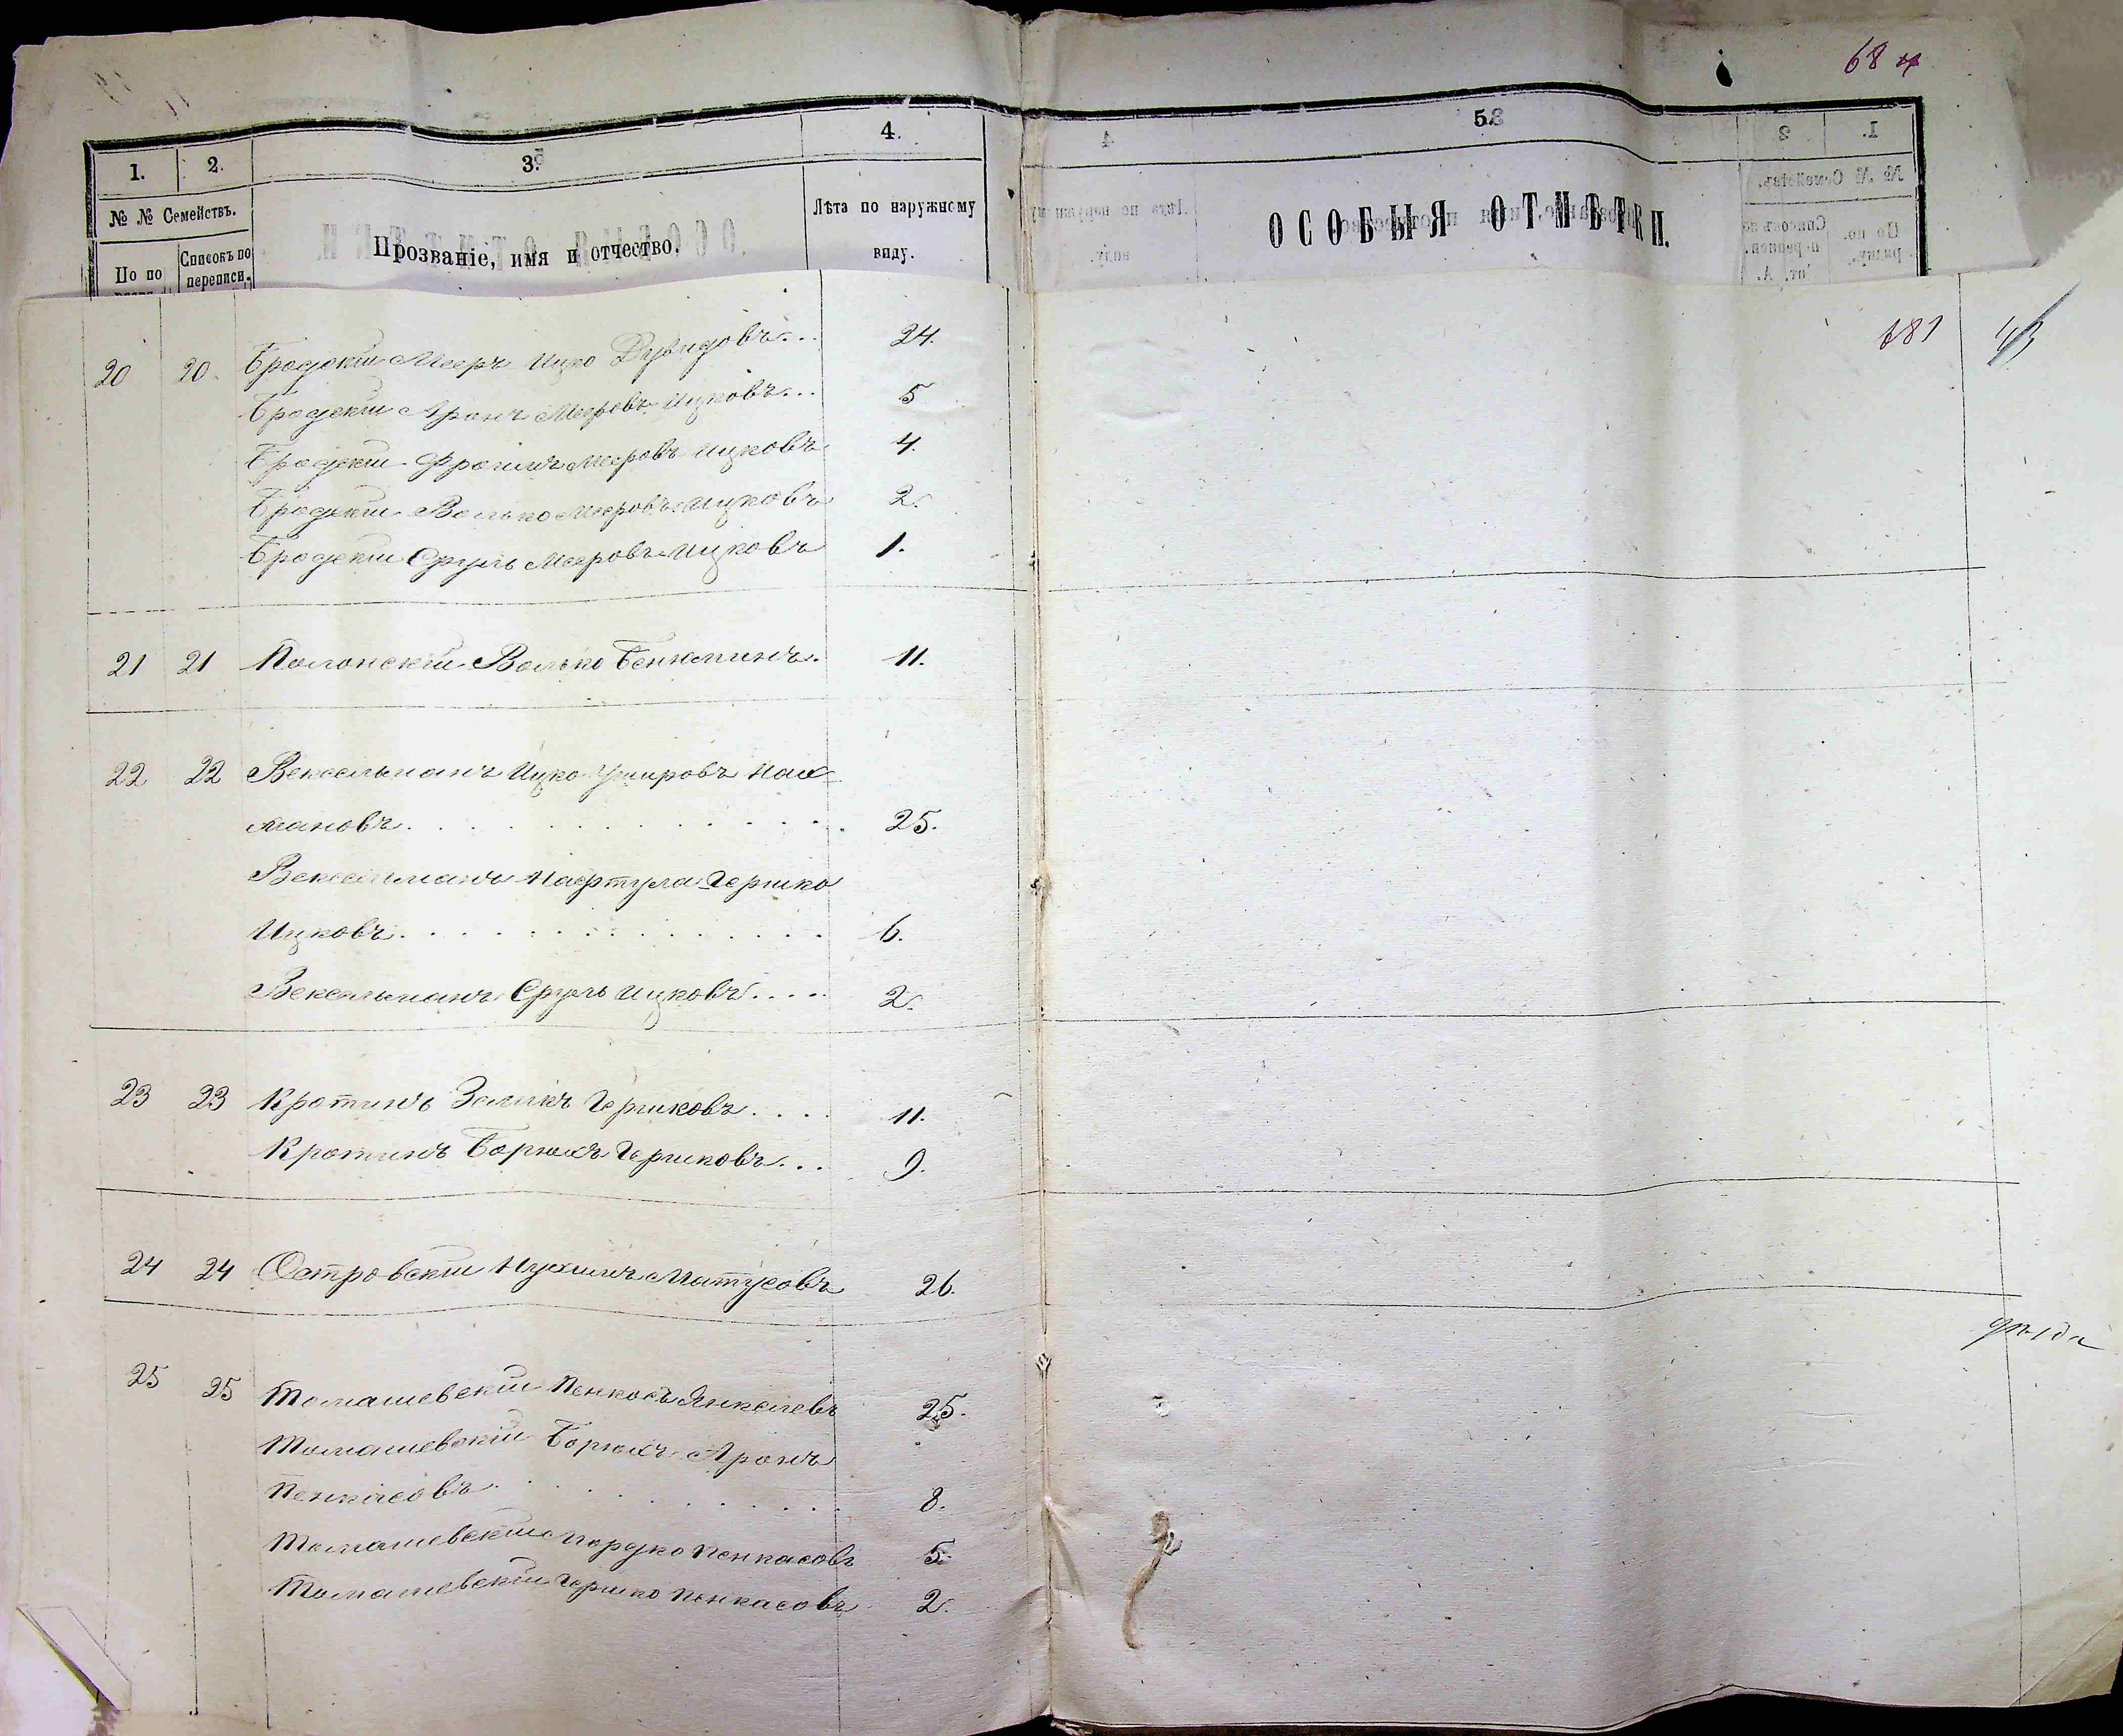 68
1. 2. 3. 4. 5.
№ № Семействъ.
По по
Списокъ по переписи.
Прозваніе, имя и отчество.
Лѣта по наружному виду.
ОСОБЫЯ ОТМѢТКИ.
181
20 20. Бродскій Мееръ Ицко Дувидовъ... 24.
Бродскій Аронъ Мееровъ Ицковъ... 5
Бродскій Фроимъ Мееровъ Ицковъ 4.
Бродскій Волько Мееровъ Ицковъ 2.
Бродскій Сруль Мееровъ Ицковъ 1.
21 21 Полонскій Волько Беняминъ. 11.
22 22 Вексельманъ Ицко Ушеровъ Нах-
мановъ. . . . 25.
Вексельманъ Нафтула Гершко
Ицковъ. . . . 6.
Вексельманъ Сруль Ицковъ.... 2.
23 23 Кротинъ Зеликъ Гершковъ.... 11.
Кротинъ Борухъ Гершковъ... 9.
24 24 Островскій Нухимъ Матусовъ 26.
25 25 Томашевскій Пенкосъ Янкелевъ 25.
Томашевскій Борухъ Аронъ
Пенкасовъ. . . . 8.
Томашевскій Нордко Пенкасовъ 5.
Томашевскій Гершко Пенкасовъ 2.